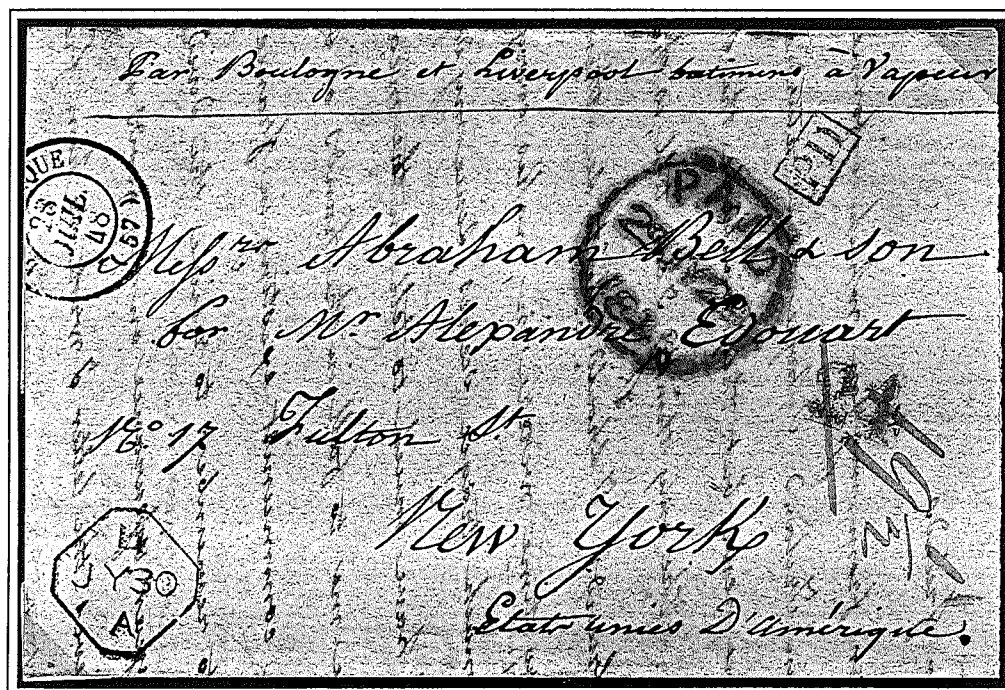 Par Boulogne et Liverpool batimens à Vapeur
PD
QUE
28
JUIL
48
(57)
Messrs Abraham Bell & son
for Mr Alexandre Edouart
No 17 Fulton St
New York
Etats unies D'amérique.
L
JY 30
A